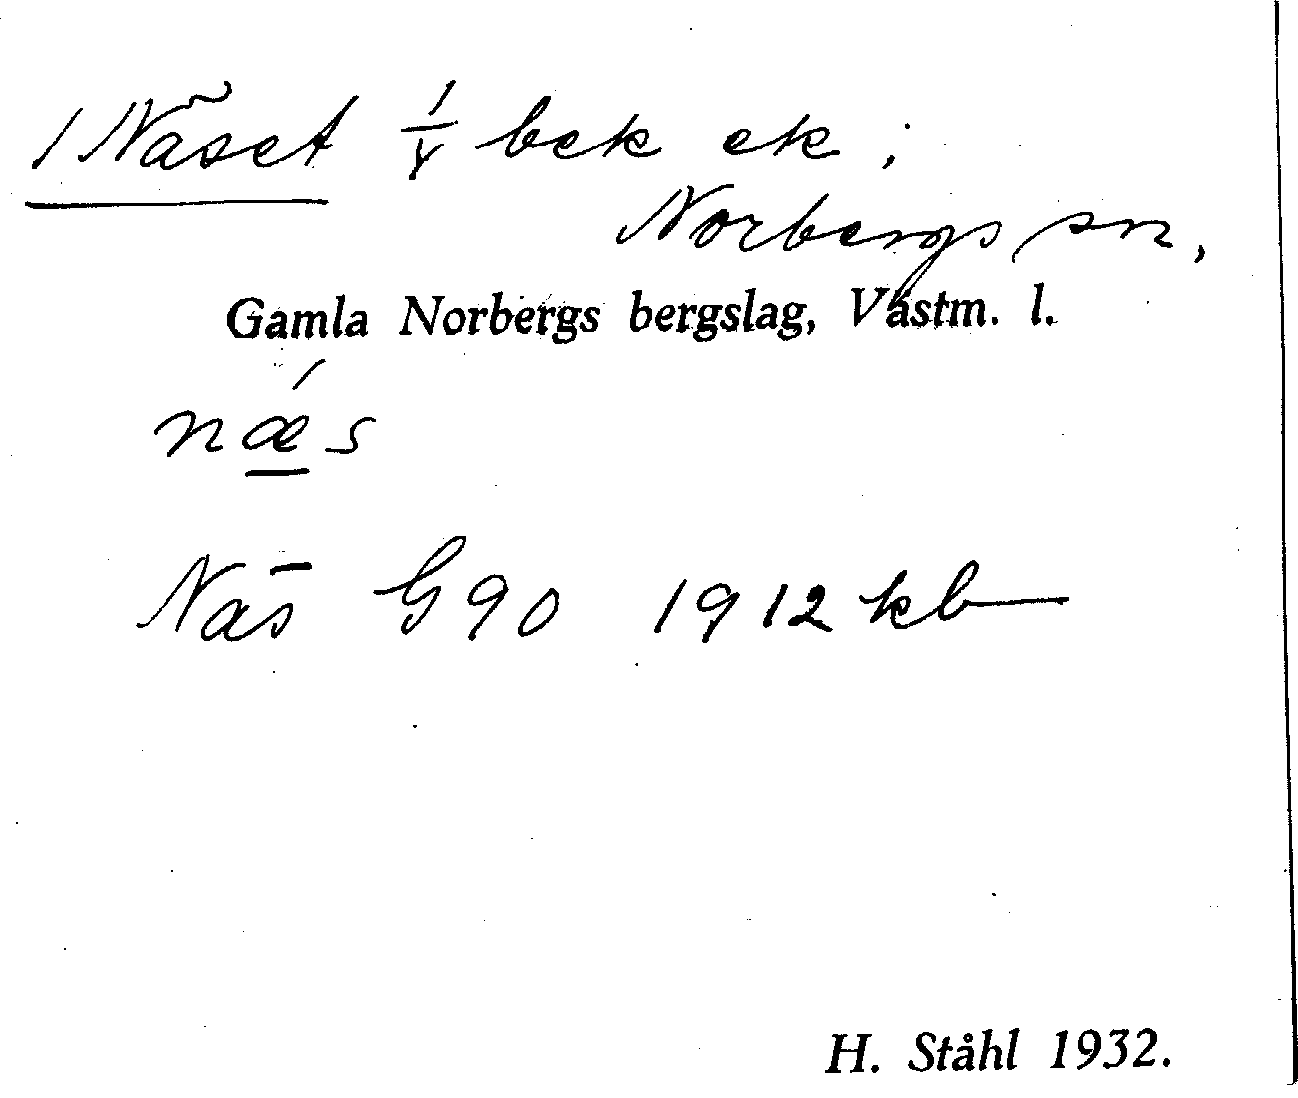 1 Näset 1/4 bek ek;
Norbergs sn,
Gamla Norbergs bergslag, Västm. l.
næ´s
Näs G 90 1912 kb
H. Ståhl 1932.